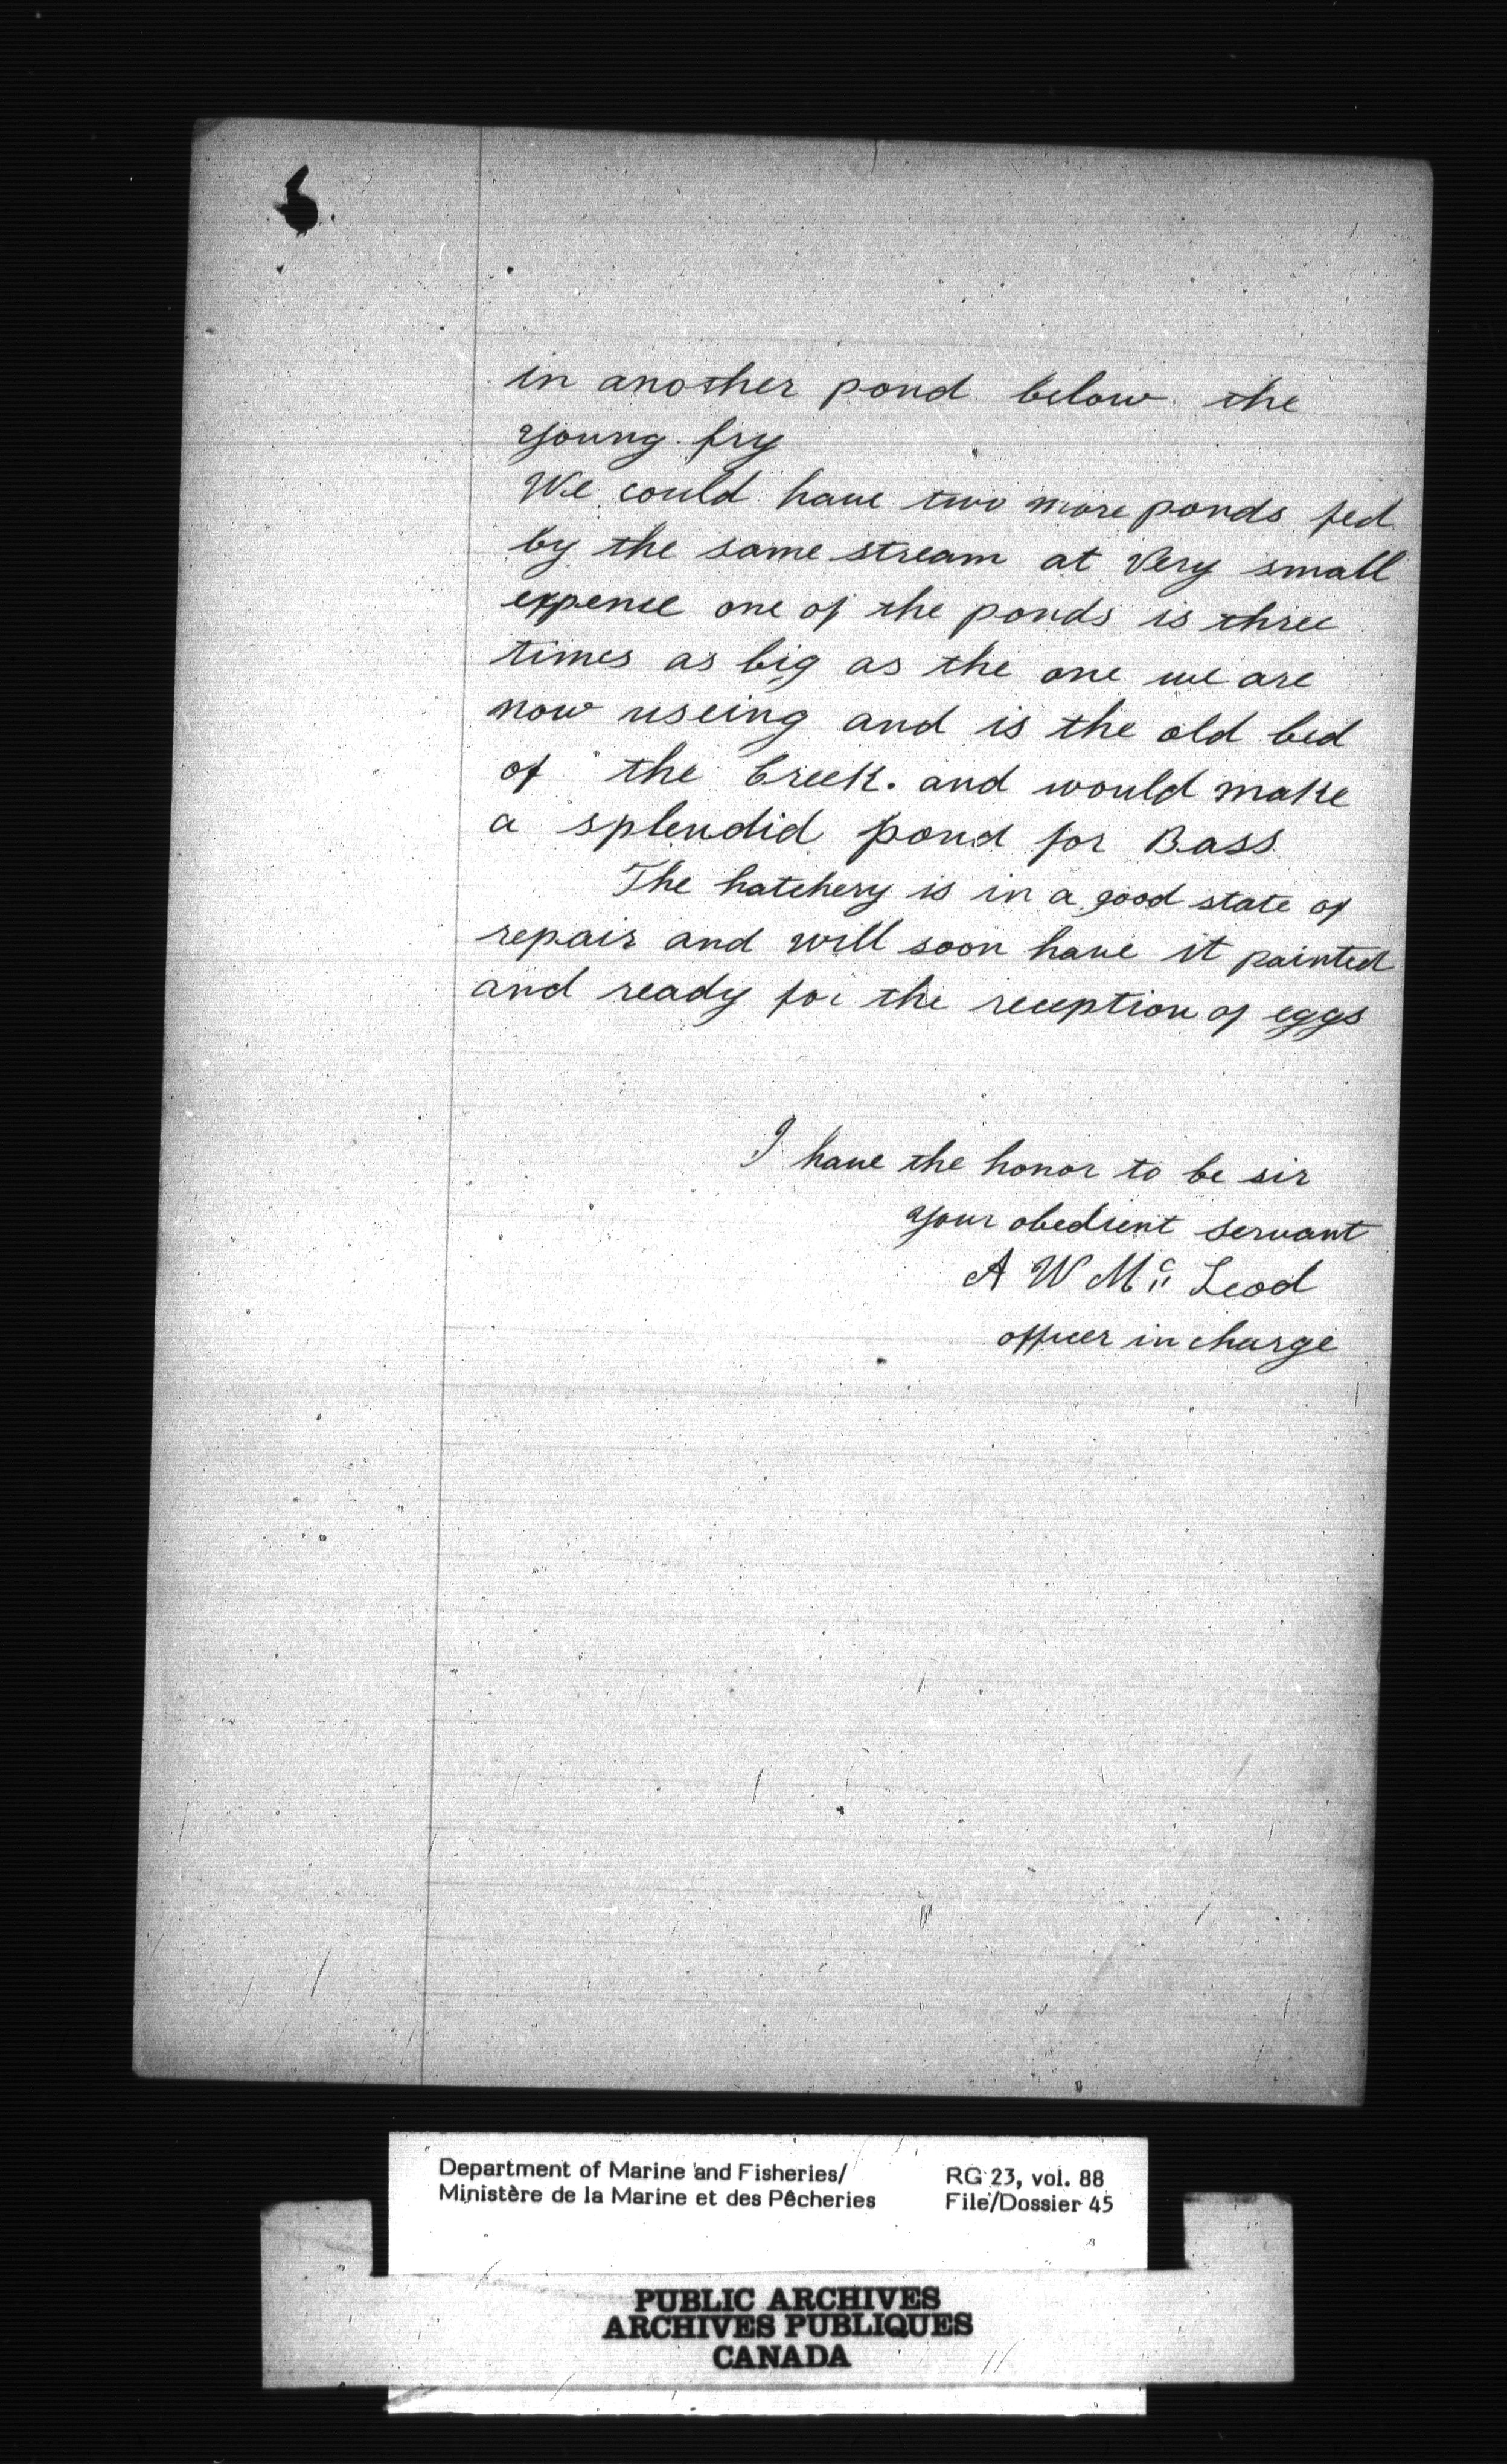 in another pond below the
young fry
We could have two more ponds fed
by the same stream at Very small
expence one of the ponds is three
times as big as the one we are
now useing and is the old bed
of the Creek. and would make
a splendid pond for Bass
The hatchery is in a good state of
repair and will soon have it painted
and ready for the reception of eggs
I have the honor to be sir
your obedient servant
A W Mc Leod
officer in charge
Department of Marine and Fisheries/
Ministère de la Marine et des Pêcheries
RG 23, vol. 88
File/Dossier 45
PUBLIC ARCHIVES
ARCHIVES PUBLIQUES
CANADA